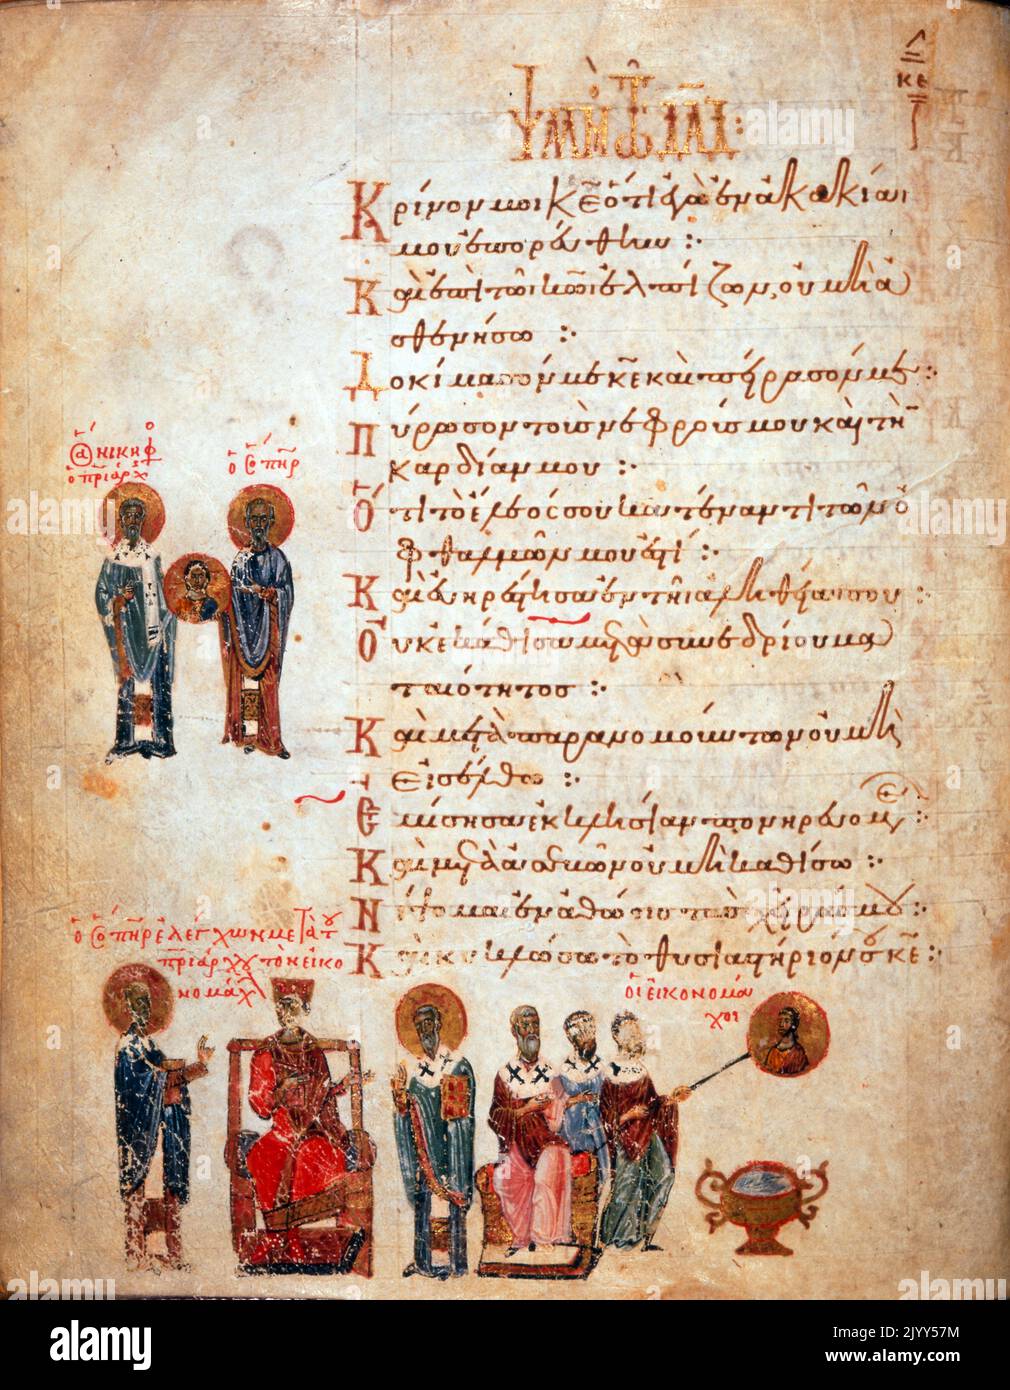 κε
Κρίνον μοι κε ὅτι ἐγὼ ἐν ἀκακίαι
μου ἐπορεύθην :·
Καὶ ἐπὶ τῶι κωι ἐλπίζων, οὐ μὴ ἀ
σθενήσω :·
Δοκίμασόν με κε καὶ πείρασόν με :·
Πύρωσον τοὺς νεφρούς μου καὶ τὴν
καρδίαν μου :·
Ὅτι τὸ ἔλεός σου κατέναντι τῶν ὀ
φθαλμῶν μου ἐστί :·
Καὶ εὐηρέστησα ἐν τῆι ἀληθείαι σου
Οὐκ ἐκάθισα μετὰ συνεδρίου μα
ταιότητος :·
Καὶ μετὰ παρανομούντων οὐ μὴ
εἰσέλθω :·
Ἐμίσησα ἐκκλησίαν πονηρευομε
Καὶ μετὰ ἀσεβῶν οὐ μὴ καθίσω :·
Νίψομαι ἐν ἀθώοις τὰς χεῖράς μου :·
Καὶ κυκλώσω τὸ θυσιαστήριόν σου κε :·
νικηφ
ὁ πριάρχ
ὁ πηρ
ὁ πηρ ἐλέγχων μετὰ τοῦ
πριάρχου τὸν εἰκο
νομάχ
οἱ εἰκονομά
χοι
alamy
Image ID: 2JYY57M
www.alamy.com